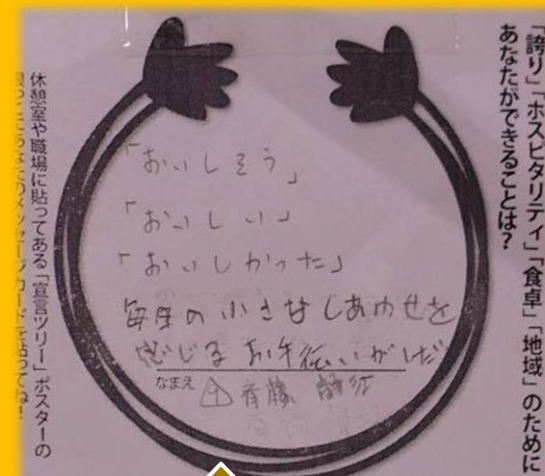 「誇り」「ホスピタリティ」「食卓」「地域」のために
あなたができることは?
「おいしそう」
「おいしい」
「おいしかった」
毎日の小さなしあわせを
感じるお手伝いがしたい
なまえ
斉藤
休憩室や職場に貼ってある「宣言ツリー」ポスターの
あなたのメッセージカードを貼ってね!